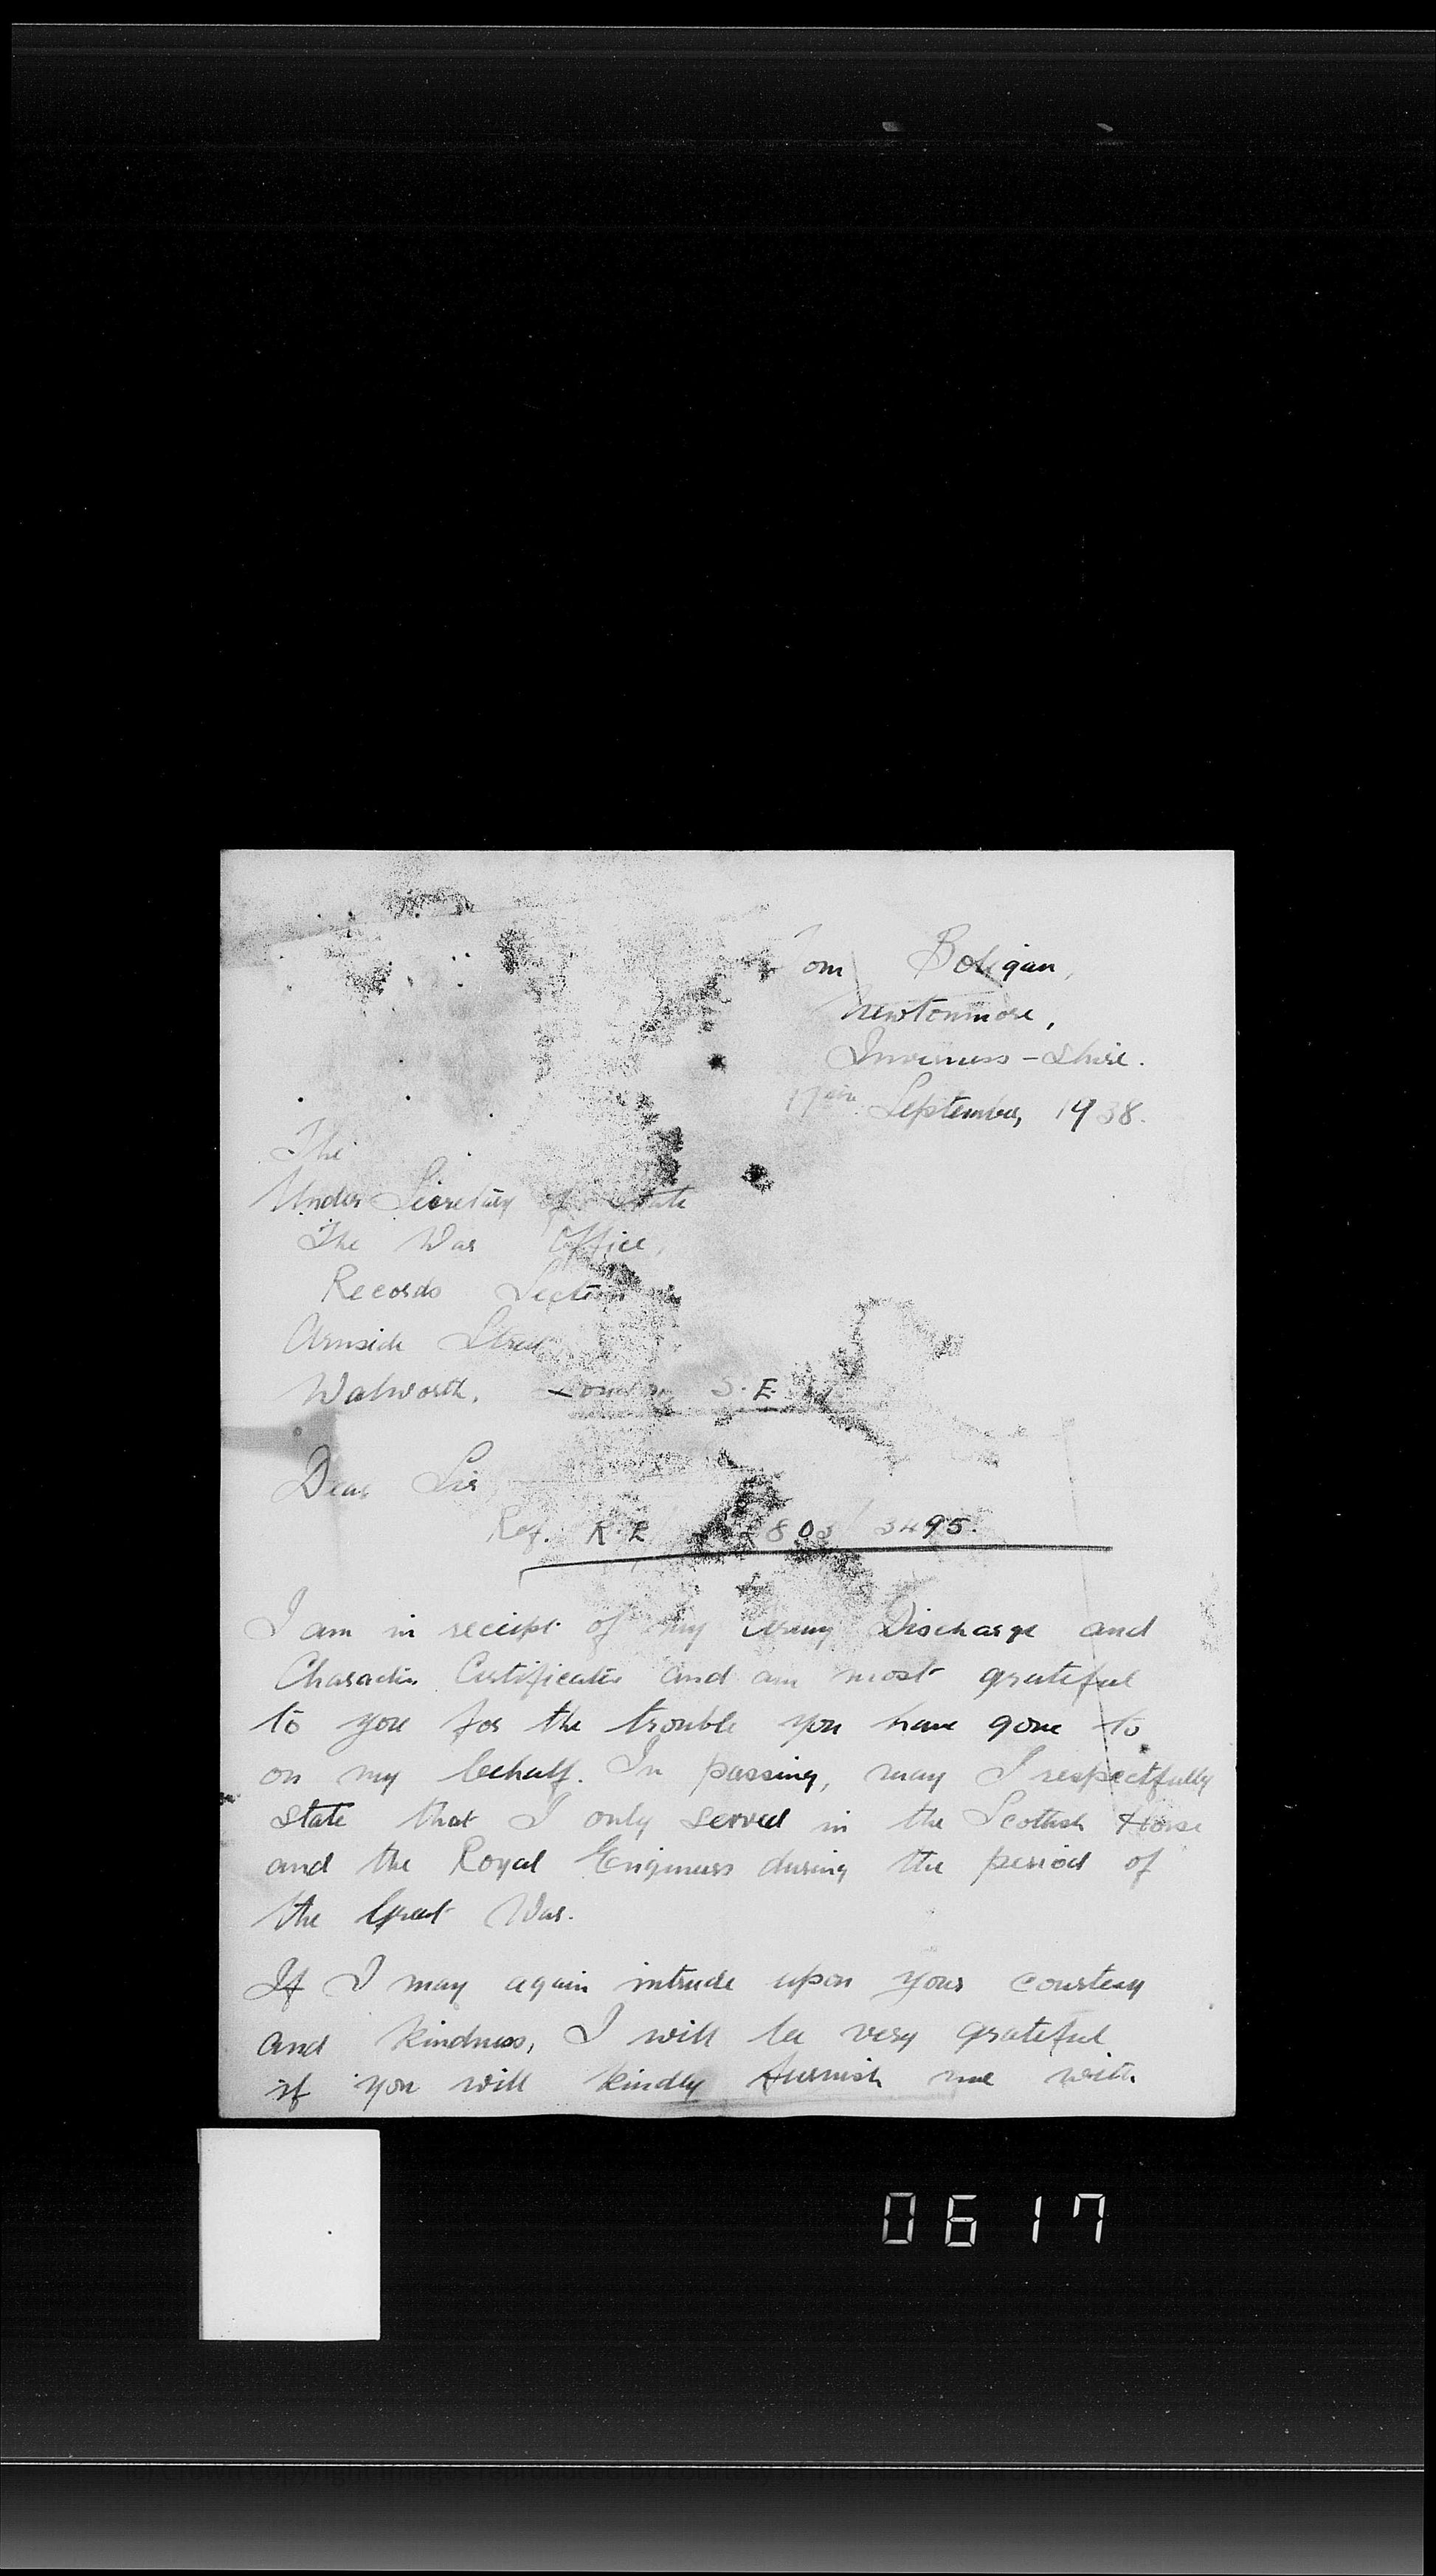 Tom Boligan,
Newtonmore,
Inverness-Shire.
17th September, 1938.
The
Under Secretary of State
The War Office,
Records Section
Arnside Street
Walworth. London S.E.
Dear Sir,
Ref. R.E 803/3495.
I am in receipt of my Army Discharge and
Character Certificate and am most grateful
to you for the trouble you have gone to
on my behalf. In passing, may I respectfully
state that I only served in the Scottish Horse
and the Royal Engineers during the period of
the Great War.
If I may again intrude upon your courtesy
and kindness, I will be very grateful
if you will kindly furnish me with
0617